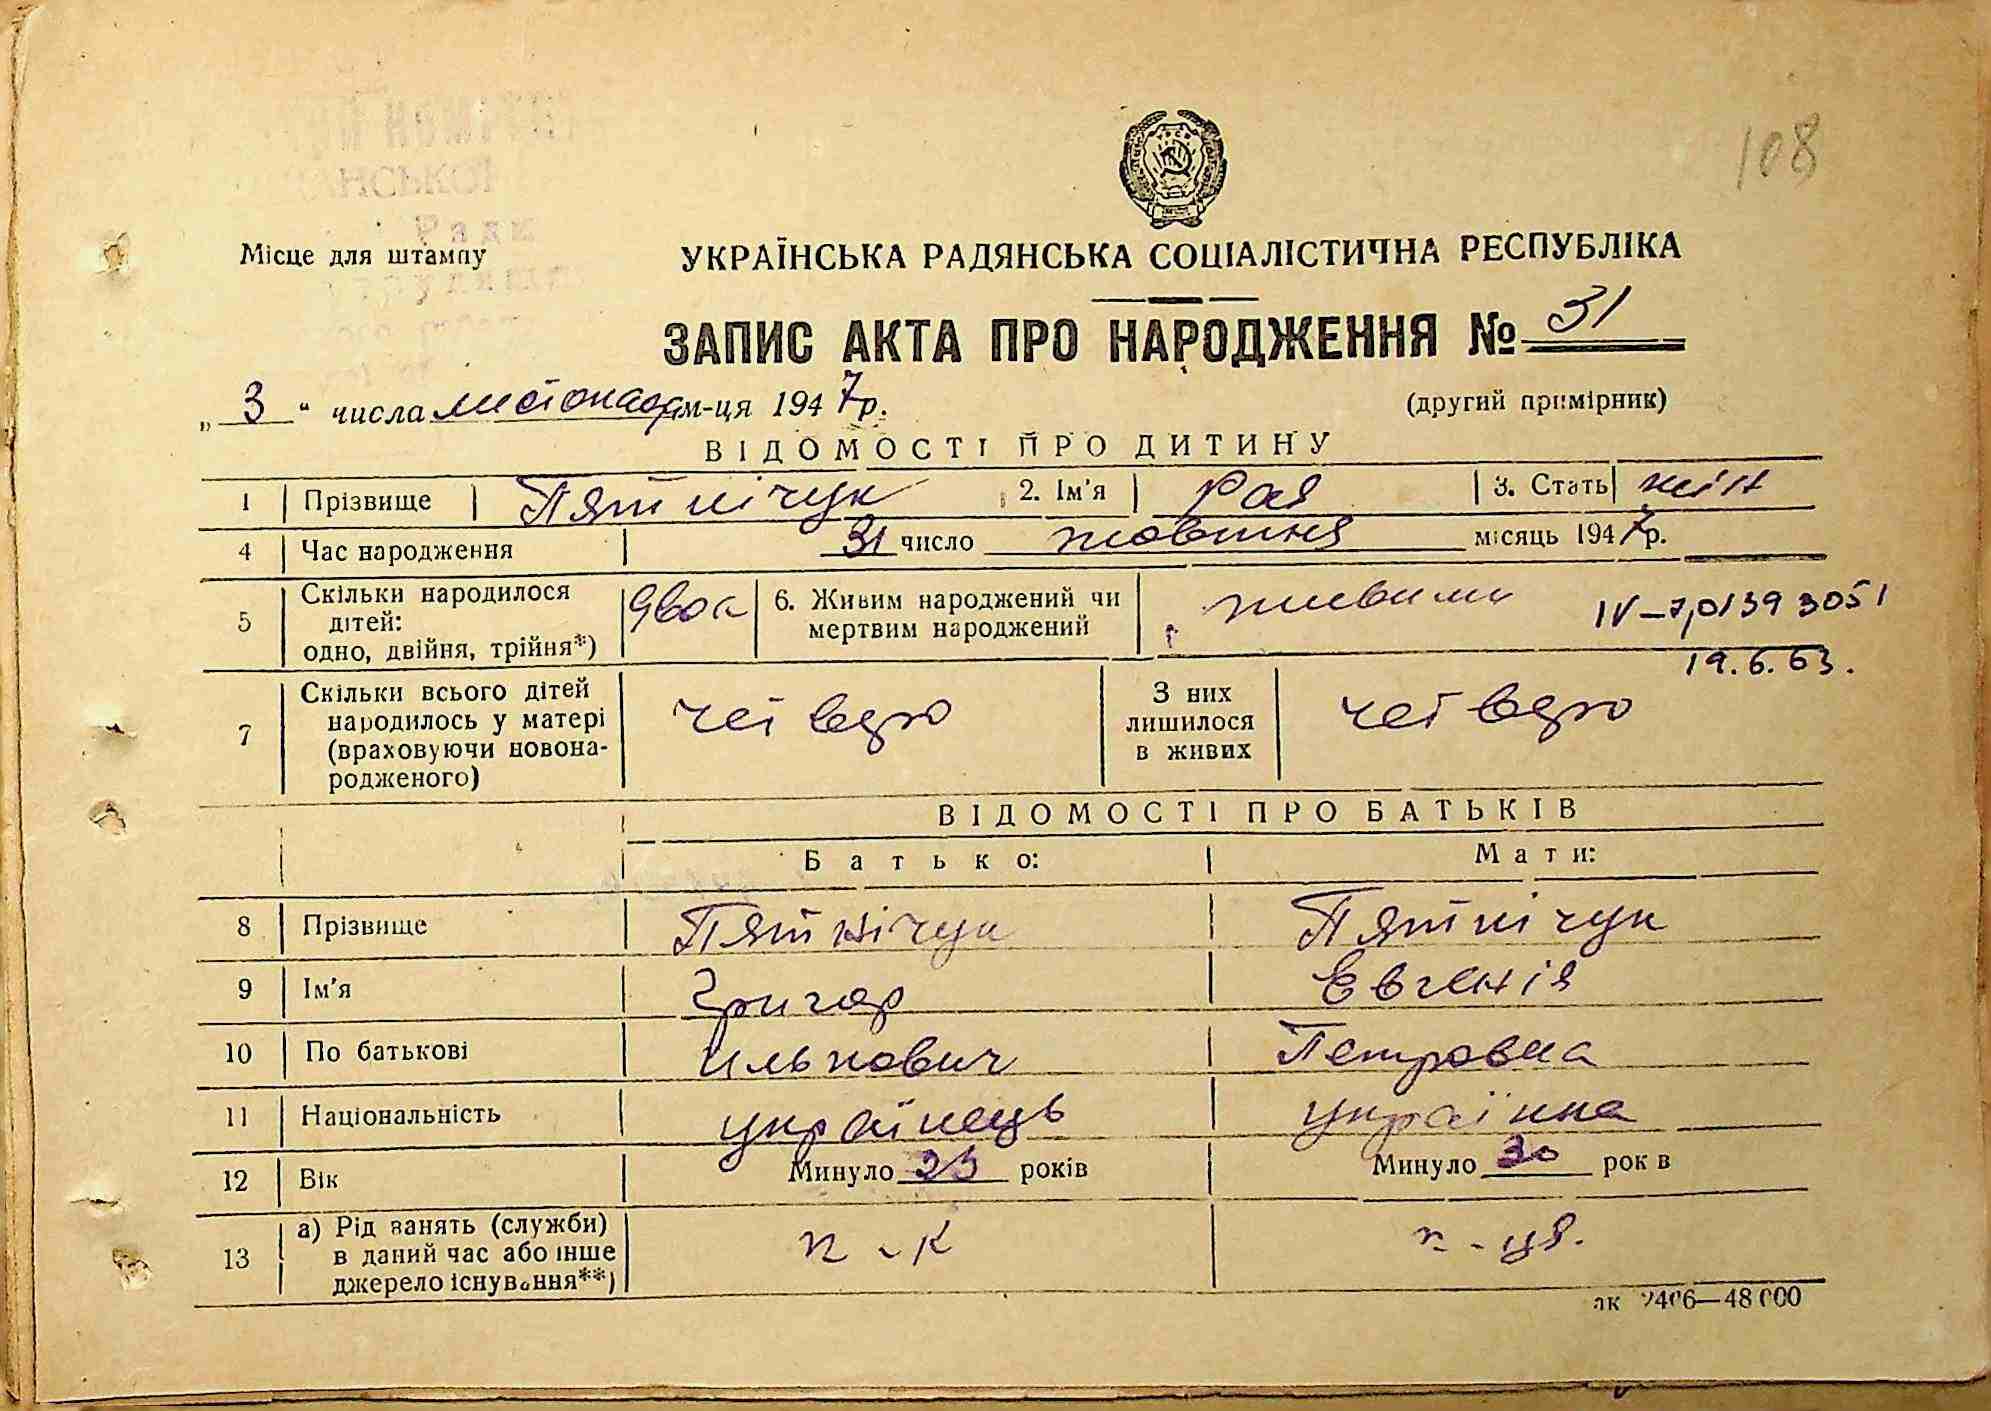 108
Ради
Місце для штампу
УКРАЇНСЬКА РАДЯНСЬКА СОЦІАЛІСТИЧНА РЕСПУБЛІКА
ЗАПИС АКТА ПРО НАРОДЖЕННЯ № 31
„ 3 “ числа листопада м-ця 1947 р.
(другий примірник)
ВІДОМОСТІ ПРО ДИТИНУ
1 Прізвище Пятнічук 2. Ім'я Рая 3. Стать жін
4 Час народження 31 число жовтня місяць 1947 р.
5 Скільки народилося дітей: одно, двійня, трійня*) двоє 6. Живим народжений чи мертвим народжений живими
IV-7,0139 3051
19.6.63.
7 Скільки всього дітей народилось у матері (враховуючи новонародженого) четверо З них лишилося в живих четверо
ВІДОМОСТІ ПРО БАТЬКІВ
Батько: Мати:
8 Прізвище Пятнічук Пятнічук
9 Ім'я Григор Евгенія
10 По батькові Илькович Петровна
11 Національність українець українка
12 Вік Минуло років Минуло 30 років
13 а) Рід занять (служби) в даний час або інше джерело існування**) к-к к-ця.
2406—48 000